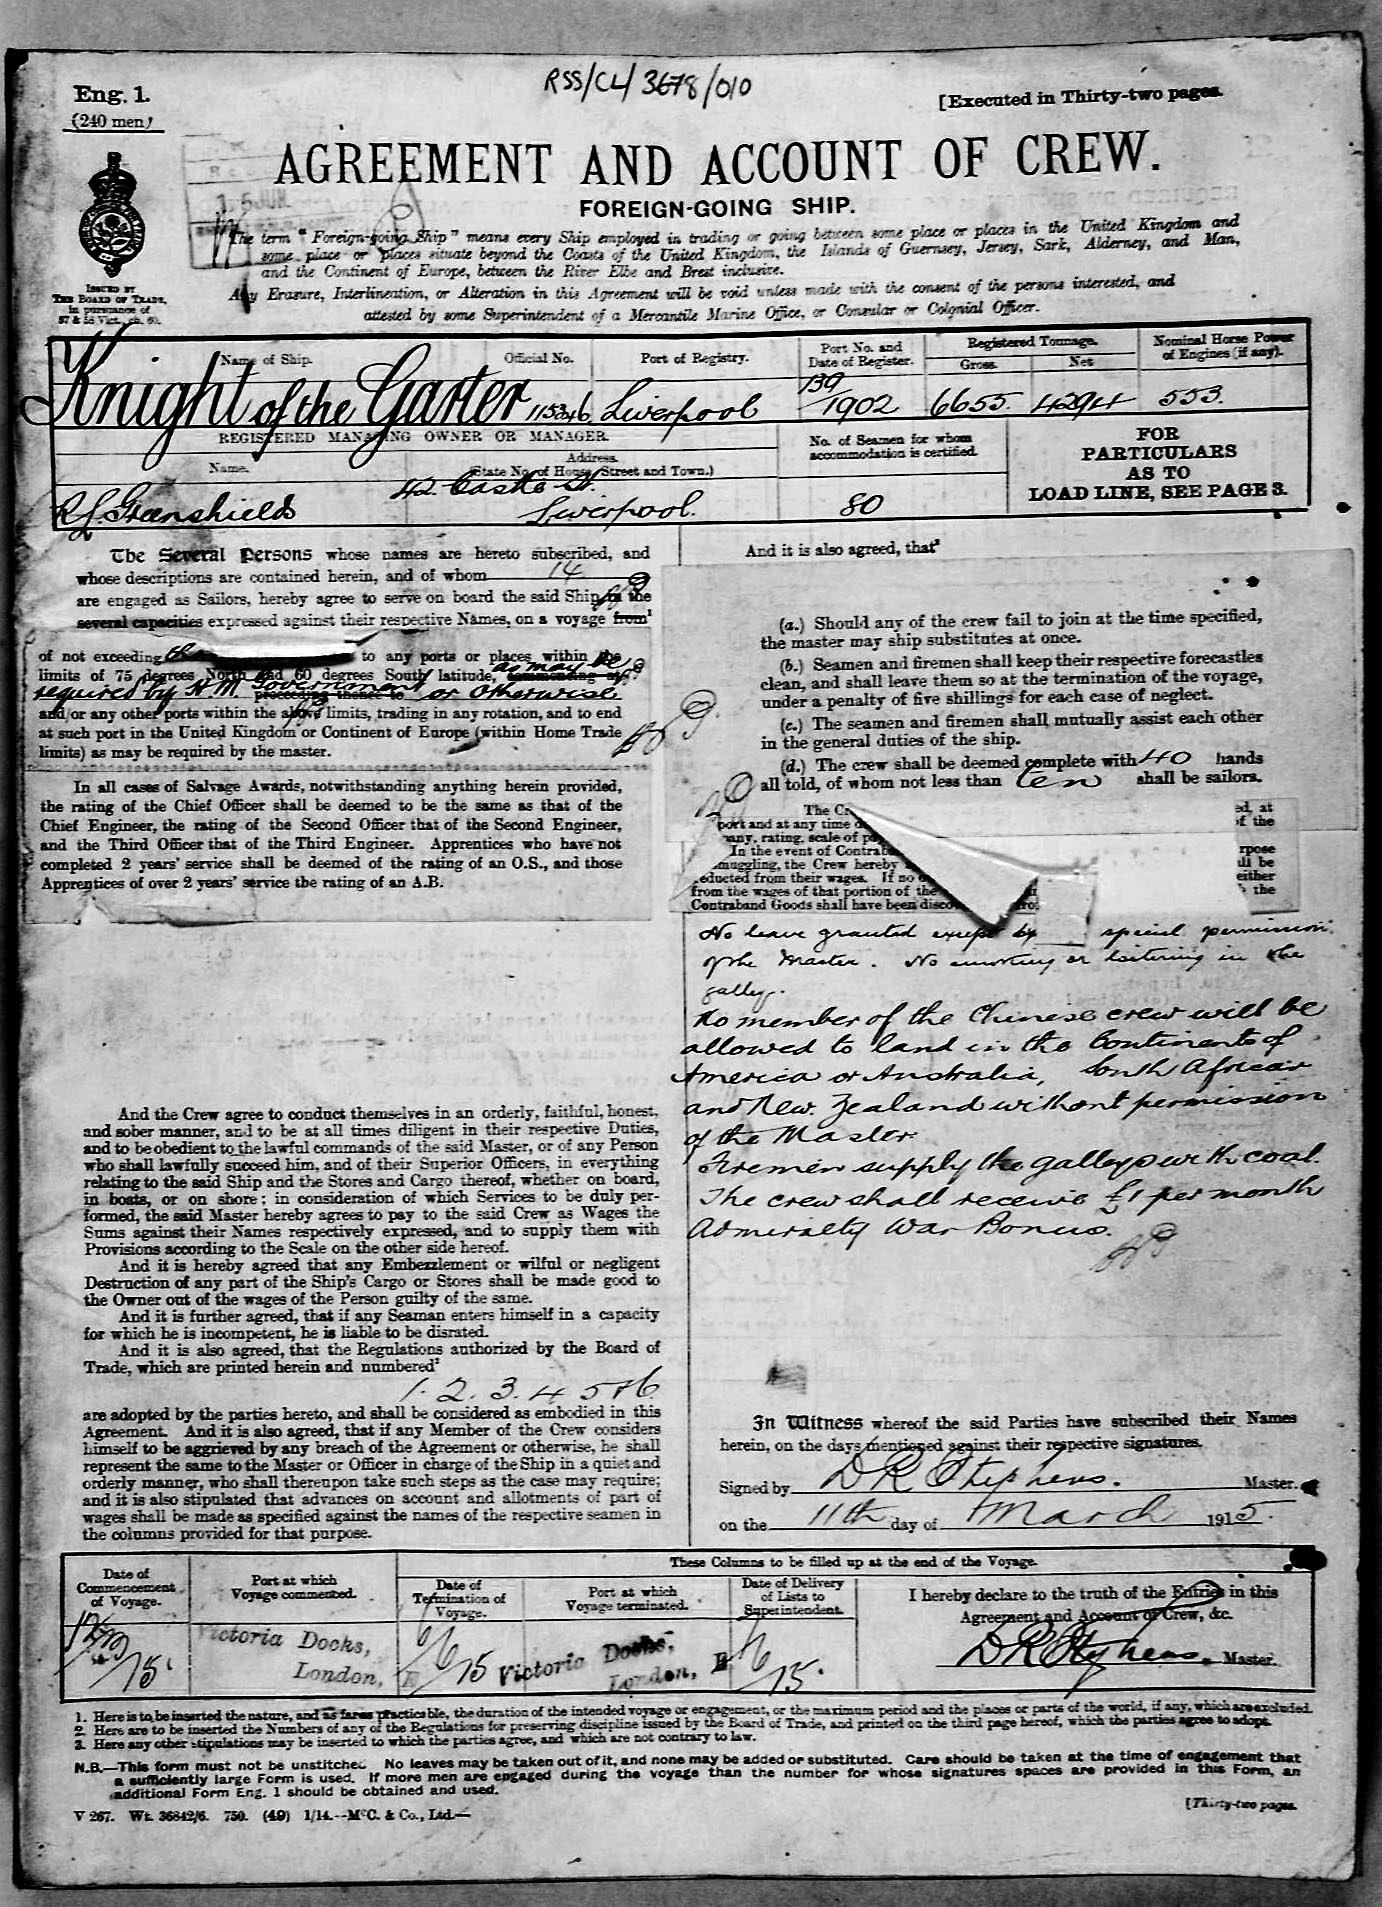 RSS/CL/3678/010
Eng. 1.
(240 men)
[Executed in Thirty-two pages.
AGREEMENT AND ACCOUNT OF CREW.
FOREIGN-GOING SHIP.
5 JUN.
The term "Foreign-going Ship" means every Ship employed in trading or going between some place or places in the United Kingdom and
some place or places situate beyond the Coasts of the United Kingdom, the Islands of Guernsey, Jersey, Sark, Alderney, and Man,
and the Continent of Europe, between the River Elbe and Brest inclusive.
Any Erasure, Interlineation, or Alteration in this Agreement will be void unless made with the consent of the persons interested, and
attested by some Superintendent of a Mercantile Marine Office, or Consular or Colonial Officer.
ISSUED BY
THE BOARD OF TRADE,
in pursuance of
57 & 58 Vict., ch. 60.
Name of Ship. Official No. Port of Registry. Port No. and Date of Register. Registered Tonnage. Gross. Net Nominal Horse Power of Engines (if any).
Knight of the Garter 115346 Liverpool 139/1902 6655 4294 553.
REGISTERED MANAGING OWNER OR MANAGER.
Name. Address. (State No. of House, Street and Town.)
No. of Seamen for whom accommodation is certified.
FOR
PARTICULARS
AS TO
LOAD LINE, SEE PAGE 3.
R. J. Greenshields 42 Castle St. Liverpool. 80
The Several Persons whose names are hereto subscribed, and
whose descriptions are contained herein, and of whom 14
are engaged as Sailors, hereby agree to serve on board the said Ship, in the
several capacities expressed against their respective Names, on a voyage from¹
of not exceeding to any ports or places within the
limits of 75 degrees North and 60 degrees South latitude, as may be
required by H.M. Government or otherwise
and/or any other ports within the above limits, trading in any rotation, and to end
at such port in the United Kingdom or Continent of Europe (within Home Trade
limits) as may be required by the master.
In all cases of Salvage Awards, notwithstanding anything herein provided,
the rating of the Chief Officer shall be deemed to be the same as that of the
Chief Engineer, the rating of the Second Officer that of the Second Engineer,
and the Third Officer that of the Third Engineer. Apprentices who have not
completed 2 years' service shall be deemed of the rating of an O.S., and those
Apprentices of over 2 years' service the rating of an A.B.
And the Crew agree to conduct themselves in an orderly, faithful, honest,
and sober manner, and to be at all times diligent in their respective Duties,
and to be obedient to the lawful commands of the said Master, or of any Person
who shall lawfully succeed him, and of their Superior Officers, in everything
relating to the said Ship and the Stores and Cargo thereof, whether on board,
in boats, or on shore; in consideration of which Services to be duly per-
formed, the said Master hereby agrees to pay to the said Crew as Wages the
Sums against their Names respectively expressed, and to supply them with
Provisions according to the Scale on the other side hereof.
And it is hereby agreed that any Embezzlement or wilful or negligent
Destruction of any part of the Ship's Cargo or Stores shall be made good to
the Owner out of the wages of the Person guilty of the same.
And it is further agreed, that if any Seaman enters himself in a capacity
for which he is incompetent, he is liable to be disrated.
And it is also agreed, that the Regulations authorized by the Board of
Trade, which are printed herein and numbered²
1. 2. 3. 4 5 & 6
are adopted by the parties hereto, and shall be considered as embodied in this
Agreement. And it is also agreed, that if any Member of the Crew considers
himself to be aggrieved by any breach of the Agreement or otherwise, he shall
represent the same to the Master or Officer in charge of the Ship in a quiet and
orderly manner, who shall thereupon take such steps as the case may require;
and it is also stipulated that advances on account and allotments of part of
wages shall be made as specified against the names of the respective seamen in
the columns provided for that purpose.
And it is also agreed, that³
(a.) Should any of the crew fail to join at the time specified,
the master may ship substitutes at once.
(b.) Seamen and firemen shall keep their respective forecastles
clean, and shall leave them so at the termination of the voyage,
under a penalty of five shillings for each case of neglect.
(c.) The seamen and firemen shall mutually assist each other
in the general duties of the ship.
(d.) The crew shall be deemed complete with 40 hands
all told, of whom not less than ten shall be sailors.
The ed, at
port and at any time of the
any, rating, scale of
In the event of rpose
muggling, the Crew hereby ll be
educted from their wages. If no either
from the wages of that portion of the the
Contraband Goods shall have been
No leave granted except by special permission
of the Master. No smoking or loitering in the
galley.
No member of the Chinese crew will be
allowed to land in the Continents of
America or Australia, South Africa
and New Zealand without permission
of the Master.
Firemen supply the galley with coal.
The crew shall receive £1 per month
Admiralty War Bonus.
In Witness whereof the said Parties have subscribed their Names
herein, on the days mentioned against their respective signatures.
Signed by D R Stephens. Master.
on the 11th day of March 1915.
These Columns to be filled up at the end of the Voyage.
Date of Commencement of Voyage. Port at which Voyage commenced. Date of Termination of Voyage. Port at which Voyage terminated. Date of Delivery of Lists to Superintendent.
I hereby declare to the truth of the Entries in this
Agreement and Account of Crew, &c.
Victoria Docks, London, E 6/15 Victoria Docks, London, E 6/15.
D R Stephens. Master.
1. Here is to be inserted the nature, and as far as practicable, the duration of the intended voyage or engagement, or the maximum period and the places or parts of the world, if any, which are excluded.
2. Here are to be inserted the Numbers of any of the Regulations for preserving discipline issued by the Board of Trade, and printed on the third page hereof, which the parties agree to adopt.
3. Here any other stipulations may be inserted to which the parties agree, and which are not contrary to law.
N.B.—This form must not be unstitched. No leaves may be taken out of it, and none may be added or substituted. Care should be taken at the time of engagement that
a sufficiently large Form is used. If more men are engaged during the voyage than the number for whose signatures spaces are provided in this Form, an
additional Form Eng. 1 should be obtained and used.
[Thirty-two pages.
V 267. Wt. 36842/6. 750. (49) 1/14.—McC. & Co., Ltd.—